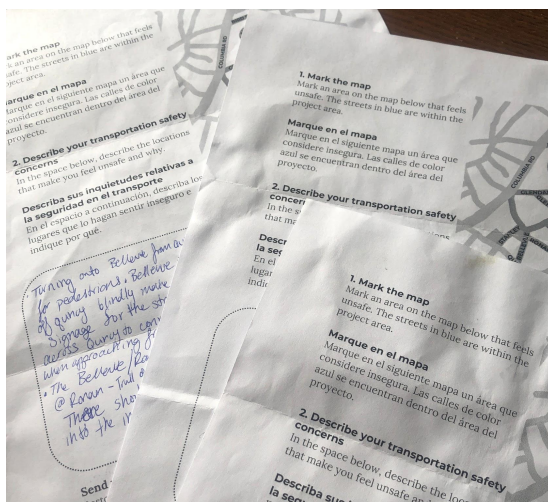 ark the map
k an area on the map below that feels
safe. The streets in blue are within the
oject area.
arque en el mapa
Marque en el siguiente mapa un área que
considere insegura. Las calles de color
azul se encuentran dentro del área del
proyecto.
2. Describe your transportation safety
concerns
In the space below, describe the locations
that make you feel unsafe and why.
Describa sus inquietudes relativas a
la seguridad en el transporte
En el espacio a continuación, describa los
lugares que lo hagan sentir inseguro e
indique por qué.
Turning onto Bellevue from
for pedestrians. Bellevue
of quincy blindly make
Signage for the str
across Quincy to con
when approaching
The Bellevue
@ Rowan - Trail
There sho
into the
Send
COLUMBIA RD
1. Mark the map
Mark an area on the map below that feels
unsafe. The streets in blue are within the
project area.
Marque en el mapa
Marque en el siguiente mapa un área que
considere insegura. Las calles de color
azul se encuentran dentro del área del
proyecto.
2. Describe your transportation safety
concern
In the s
that ma
Descr
la se
En el
lugar
indic
COLUMBIA
GLENDA
1. Mark the map
Mark an area on the map below that feels
unsafe. The streets in blue are within the
project area.
Marque en el mapa
Marque en el siguiente mapa un área que
considere insegura. Las calles de color
azul se encuentran dentro del área del
proyecto.
2. Describe your transportation safety
concerns
In the space below, describe the loca
that make you feel unsafe an
Describa sus
la segu
En el